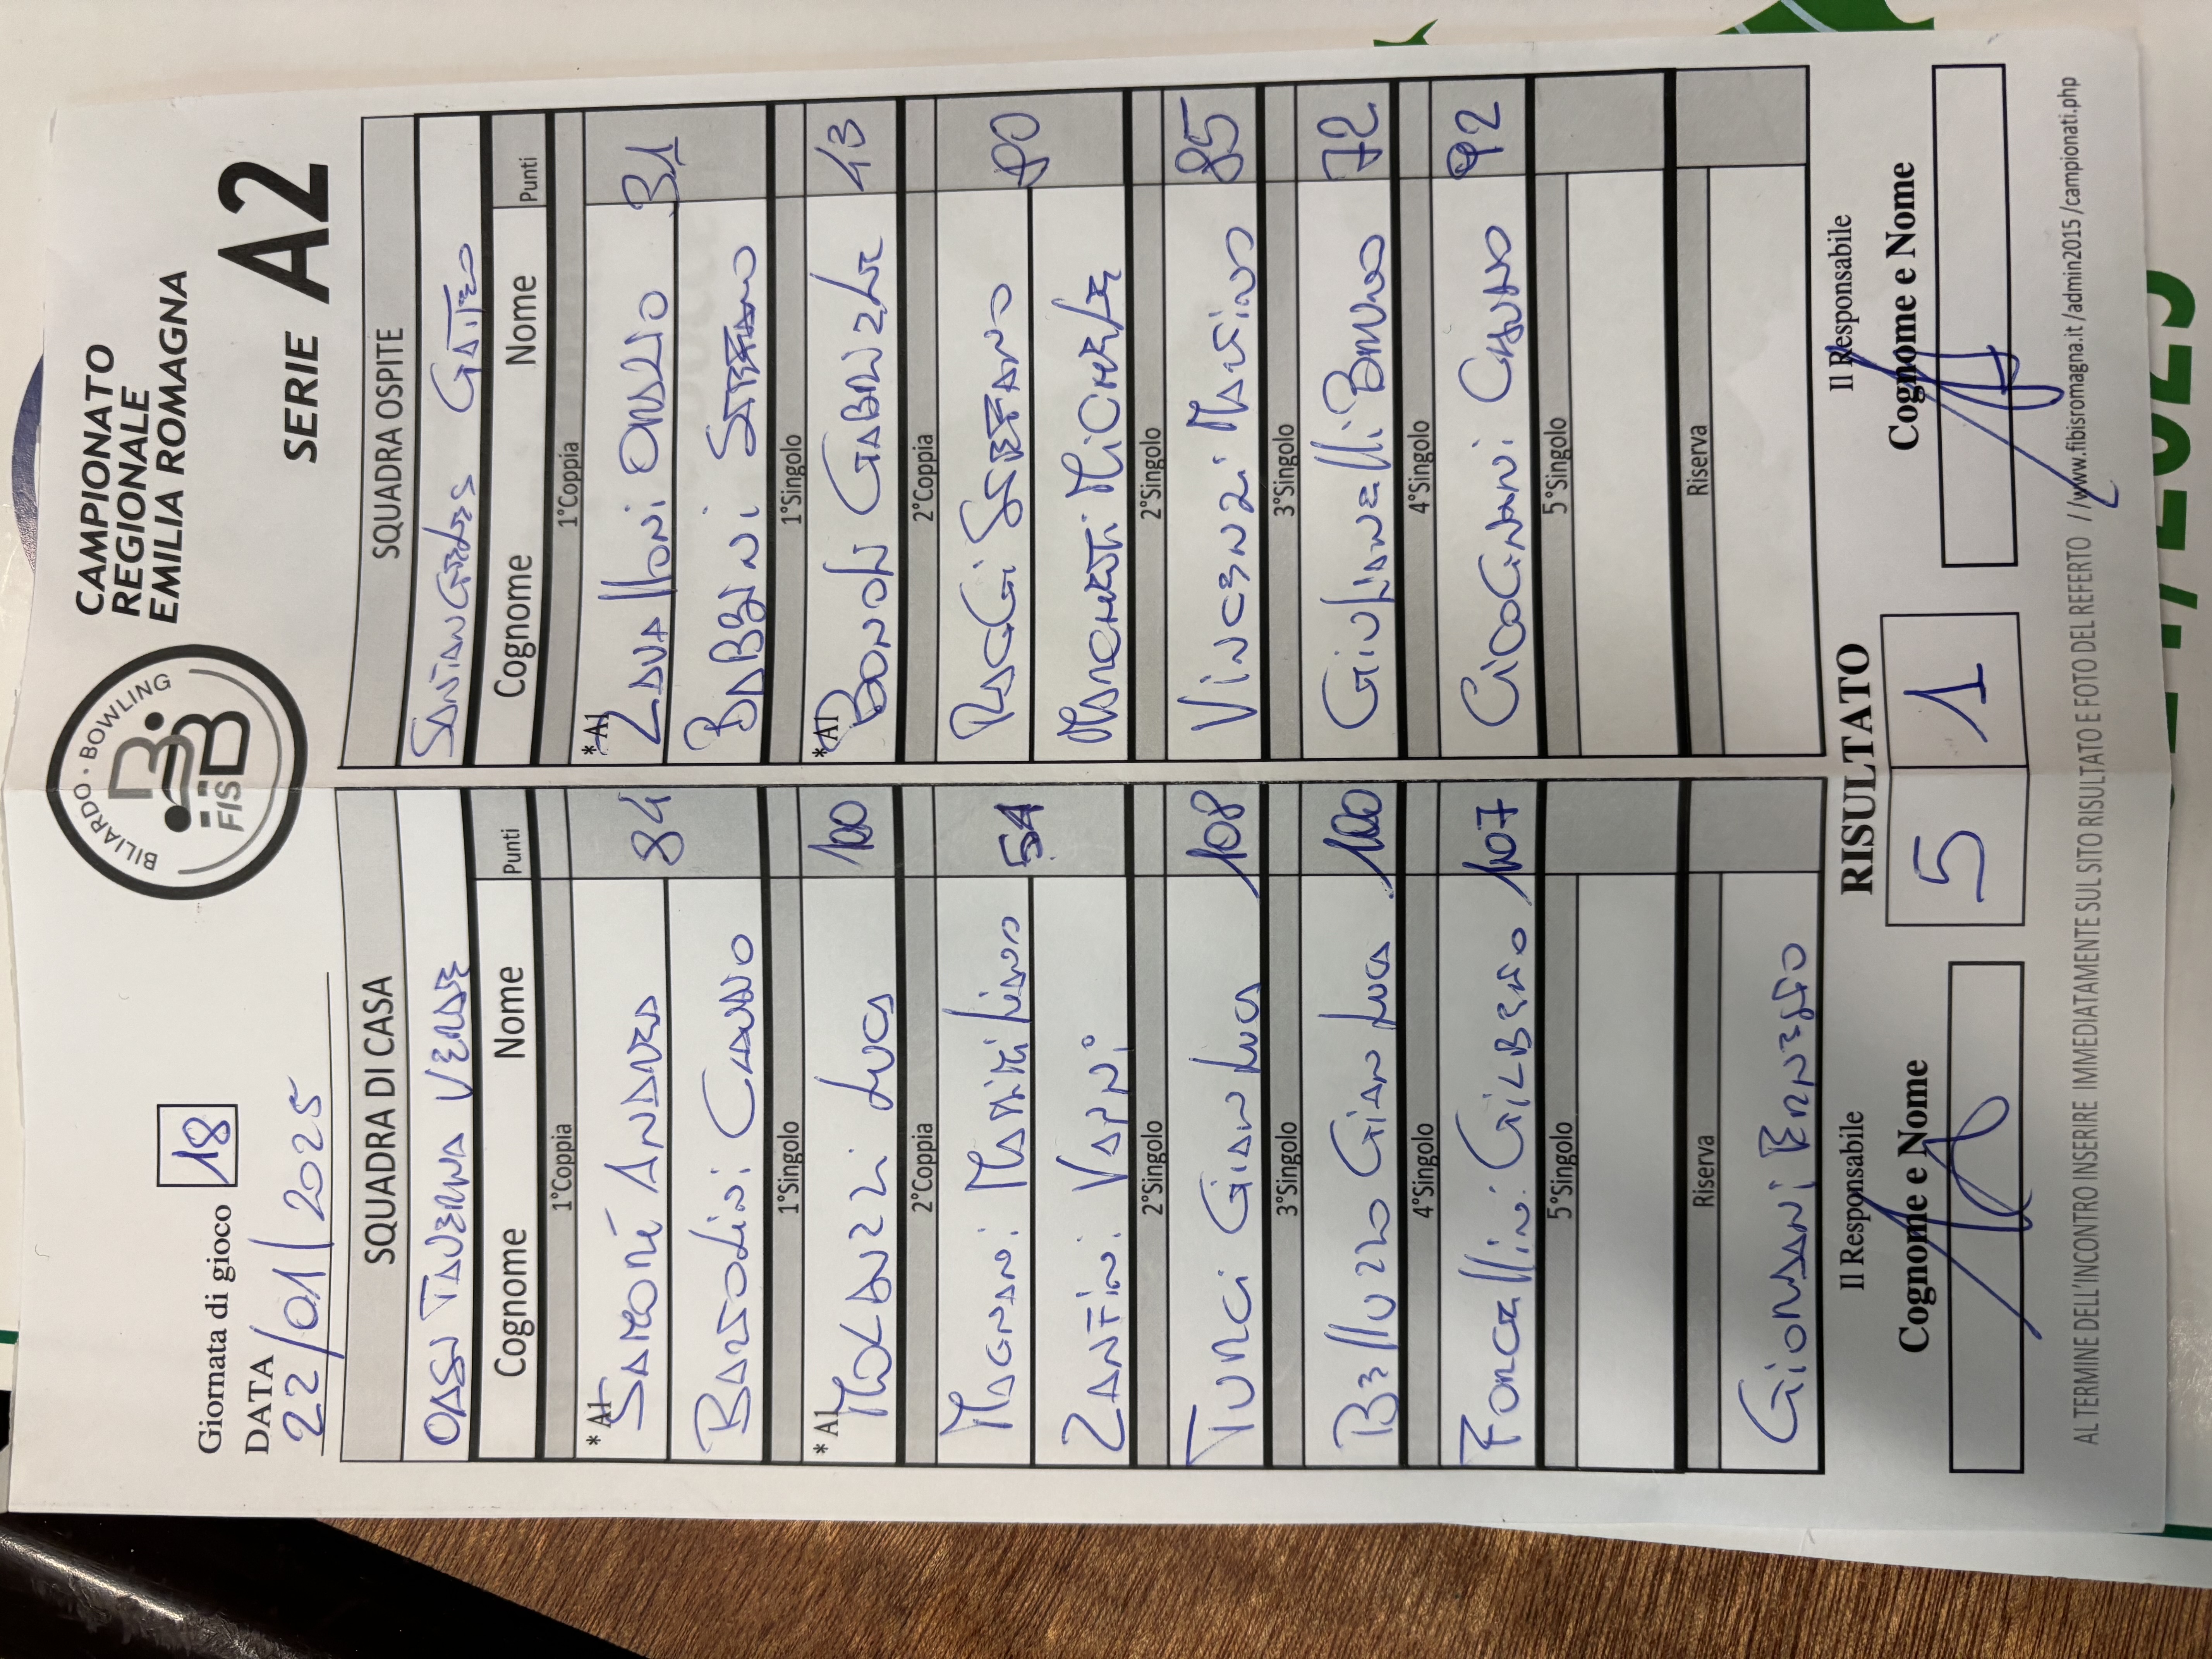 BILIARDO · BOWLING
FISBB
CAMPIONATO
REGIONALE
EMILIA ROMAGNA
Giornata di gioco 18
DATA
22/01/2025
SERIE A2
SQUADRA DI CASA SQUADRA OSPITE
OASI TAVERNA VERDE SANTANGELO'S GATTEO
Cognome Nome Punti Cognome Nome Punti
1°Coppia 1°Coppia
*A1 SAMORÉ ANDREA 84 *A1 ZAVALLONI ORAZIO 31
BARTOLINI CLAUDIO BABBINI STEFANO
1°Singolo 1°Singolo
*A1 MOLDUZZI LUCA 100 *A1 BONOLI GABRIELE 43
2°Coppia 2°Coppia
MAGNANI MASSIMILIANO 54 RAGGI STEFANO 80
ZANFINI VANNI MARCHETTI MICHELE
2°Singolo 2°Singolo
TURCI GIANLUCA 108 VINCENZI MASSIMO 85
3°Singolo 3°Singolo
BELLUZZO GIANLUCA 100 GIULIANELLI BRUNO 72
4°Singolo 4°Singolo
FORCELLINI GILBERTO 107 GIOGNANI 92
5°Singolo 5°Singolo
Riserva Riserva
GIORDANI RENZO
Il Responsabile RISULTATO Il Responsabile
Cognome e Nome 5 1 Cognome e Nome
AL TERMINE DELL'INCONTRO INSERIRE IMMEDIATAMENTE SUL SITO RISULTATO E FOTO DEL REFERTO //www.fibisromagna.it /admin2015 /campionati.php